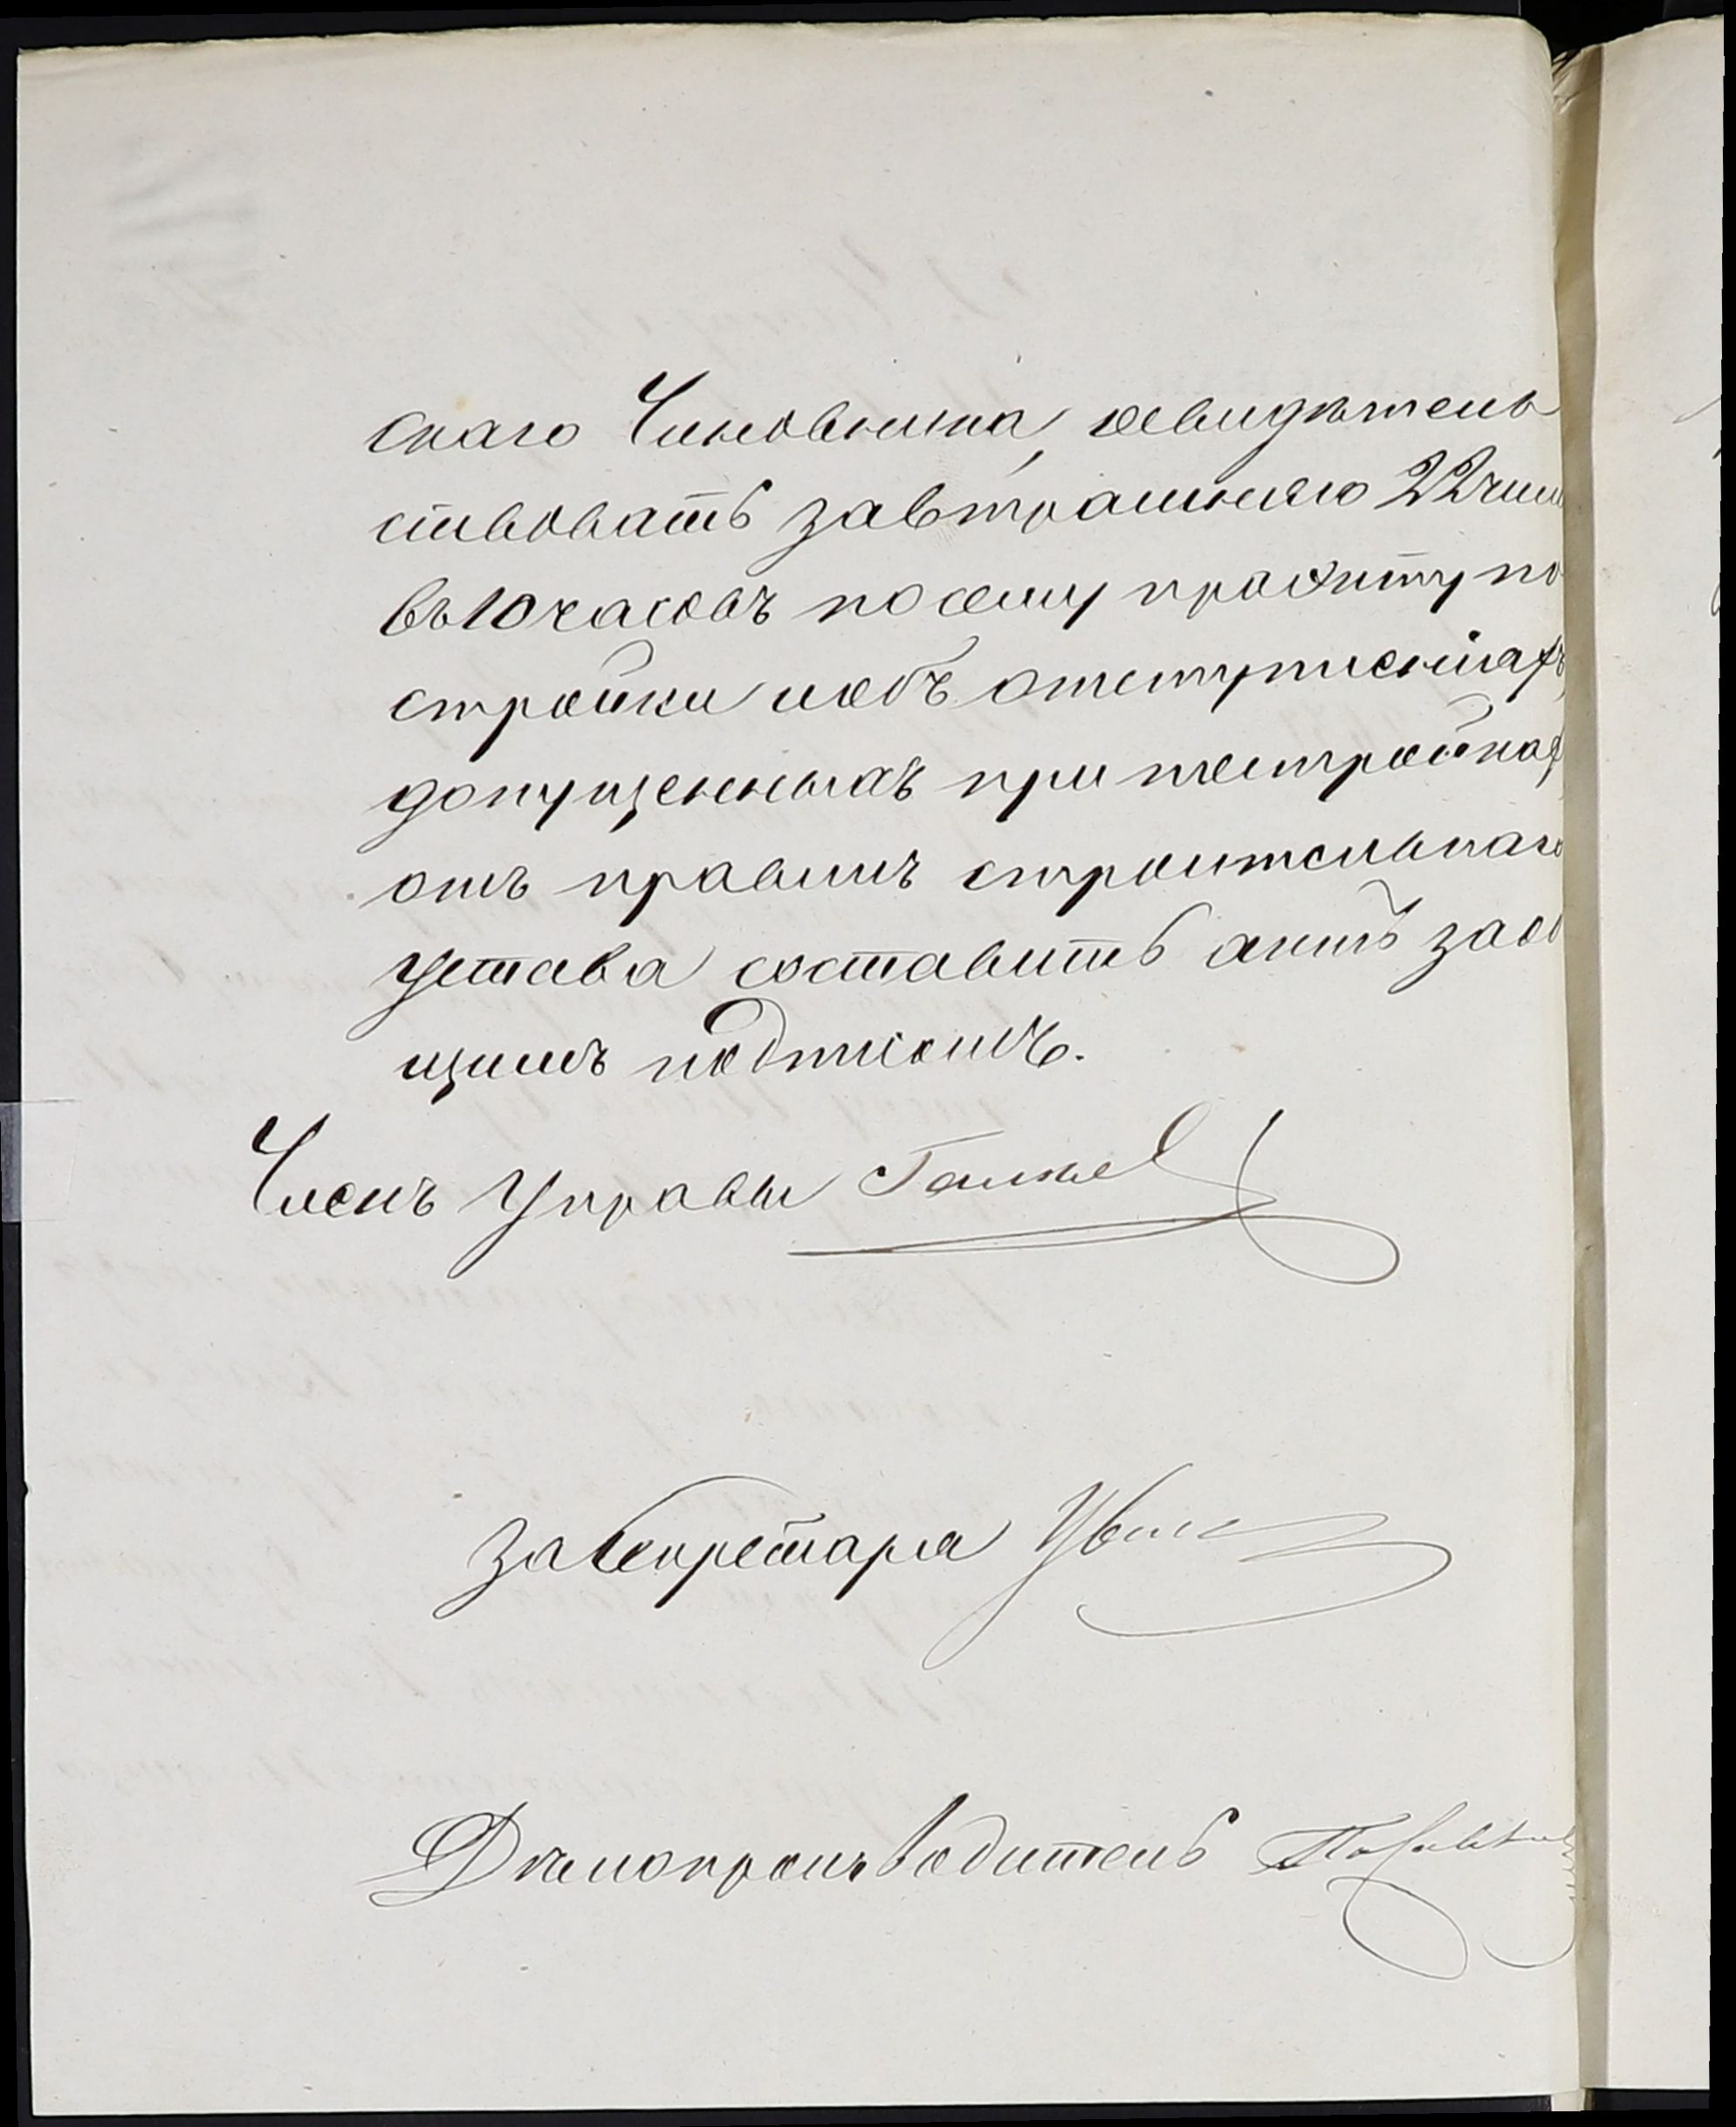 скаго Чиновника, освидѣтель
ствовать завтрашняго 22 чис
въ 10 часовъ по сему проэкту по
стройки и объ отступленіяхъ,
допущенныхъ при постройкѣ
отъ правилъ строительнаго
устава составить актъ за об
щимъ подписомъ.
Членъ Управы
За Секретаря
Дѣлопроизводитель